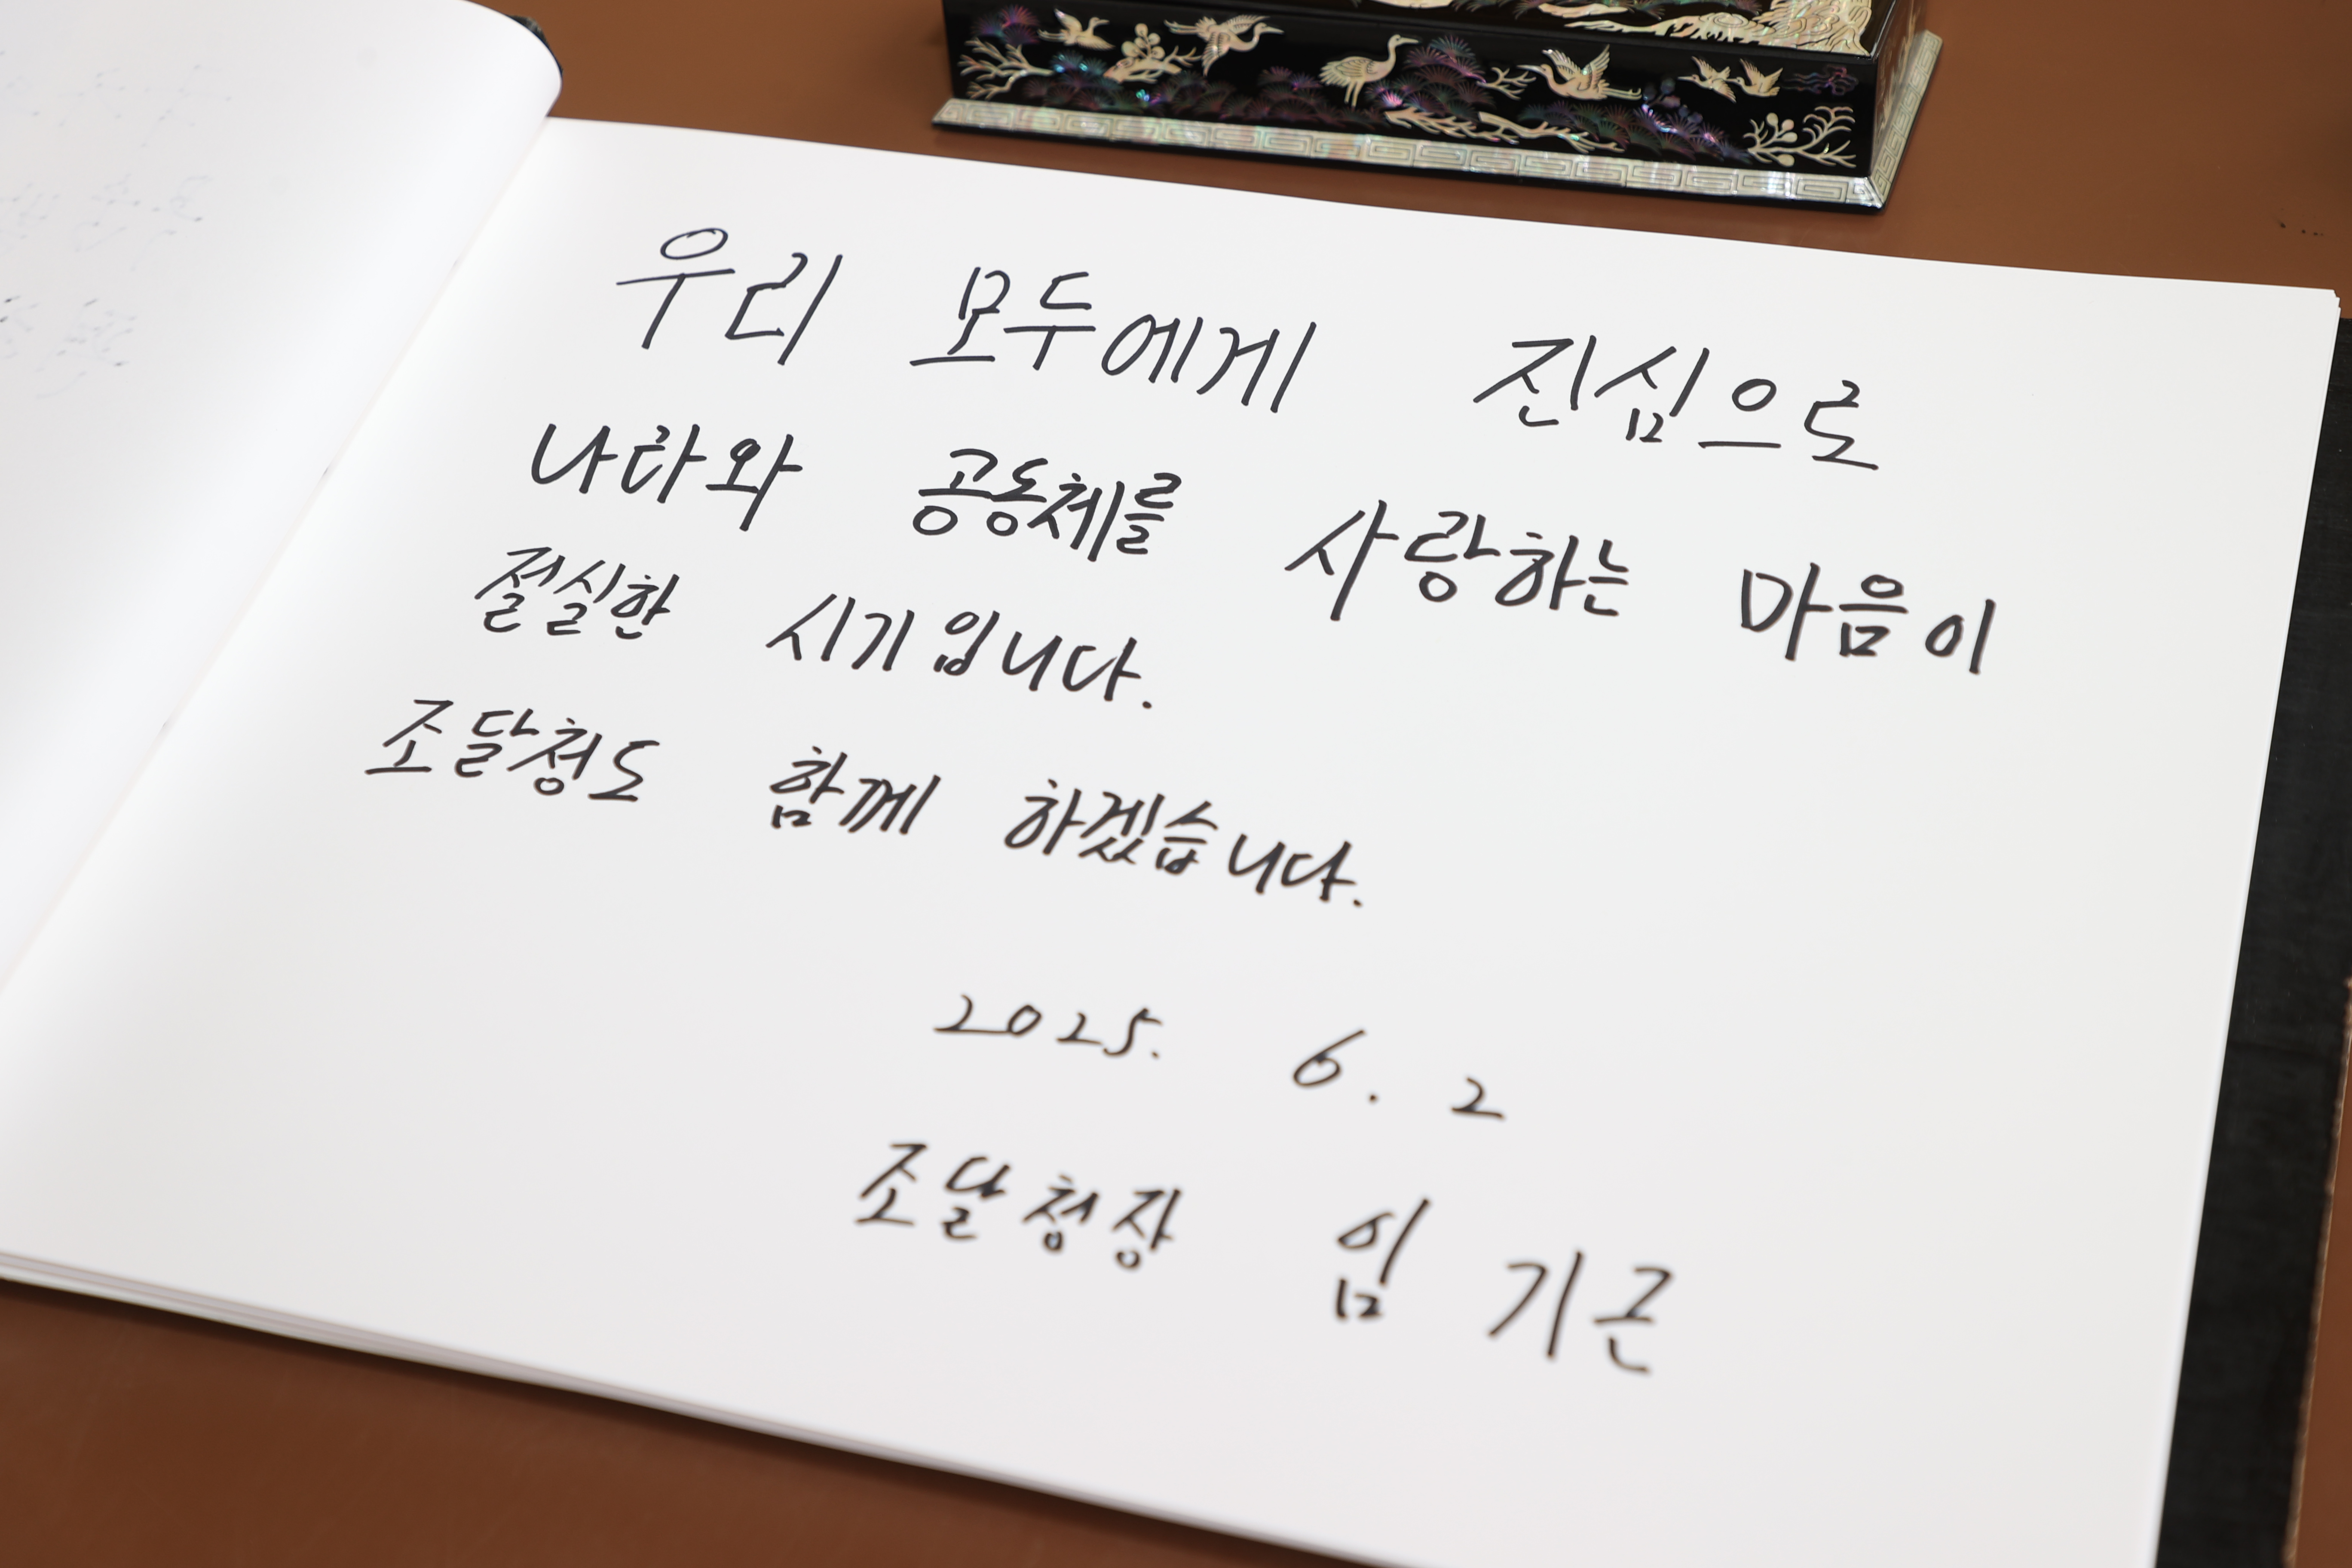 우리 모두에게 진심으로
나라와 공동체를 사랑하는 마음이
절실한 시기입니다.
조달청도 함께 하겠습니다.
2025. 6. 2
조달청장 임기근